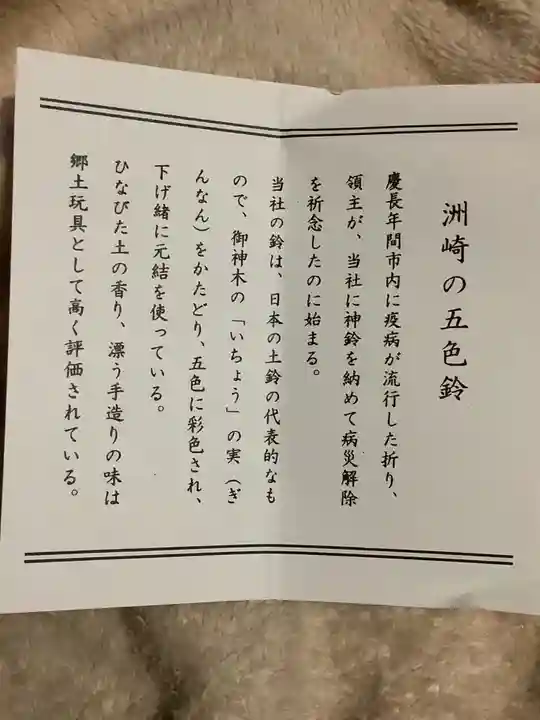 洲崎の五色鈴
慶長年間市内に疫病が流行した折り、
領主が、当社に神鈴を納めて病災解除
を祈念したのに始まる。
当社の鈴は、日本の土鈴の代表的なも
ので、御神木の「いちょう」の実（ぎ
んなん）をかたどり、五色に彩色され、
下げ緒に元結を使っている。
ひなびた土の香り、漂う手造りの味は
郷土玩具として高く評価されている。